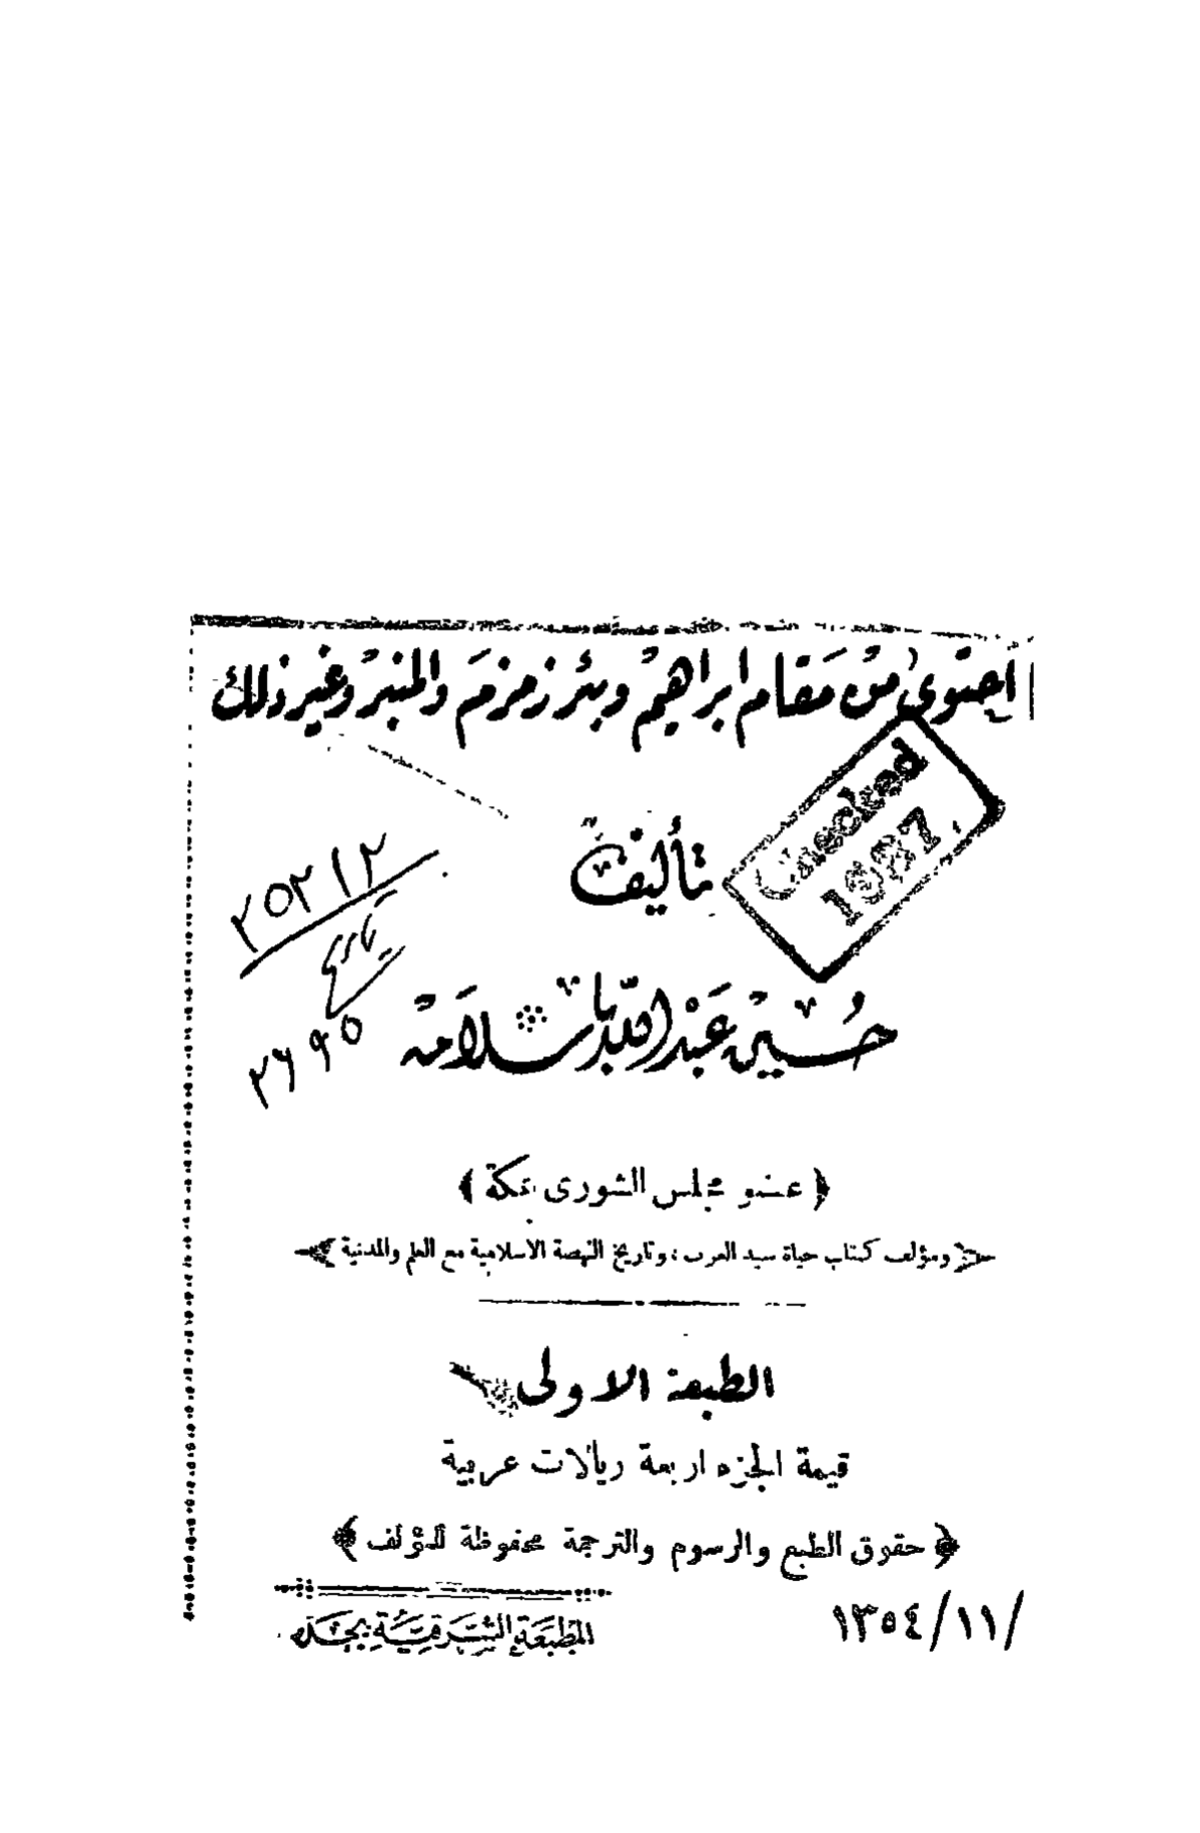 احتوى من مقام ابراهيم وبئر زمزم والمنبر وغير ذلك
Checked
1987
تأليف
٢٥٢١٢
تاريخ
٢٦٩٥
حسين عبد الله باسلامه
﴿ عضو مجلس الشورى بمكة ﴾
﴿ ومؤلف كتاب حياة سيد العرب ؛ وتاريخ النهضة الاسلامية مع العلم والمدنية ﴾
الطبعة الاولى
قيمة الجزء اربعة ريالات عربية
﴿ حقوق الطبع والرسوم والترجمة محفوظة للمؤلف ﴾
١٣٥٤/١١/
المطبعة الشرقية بجدة